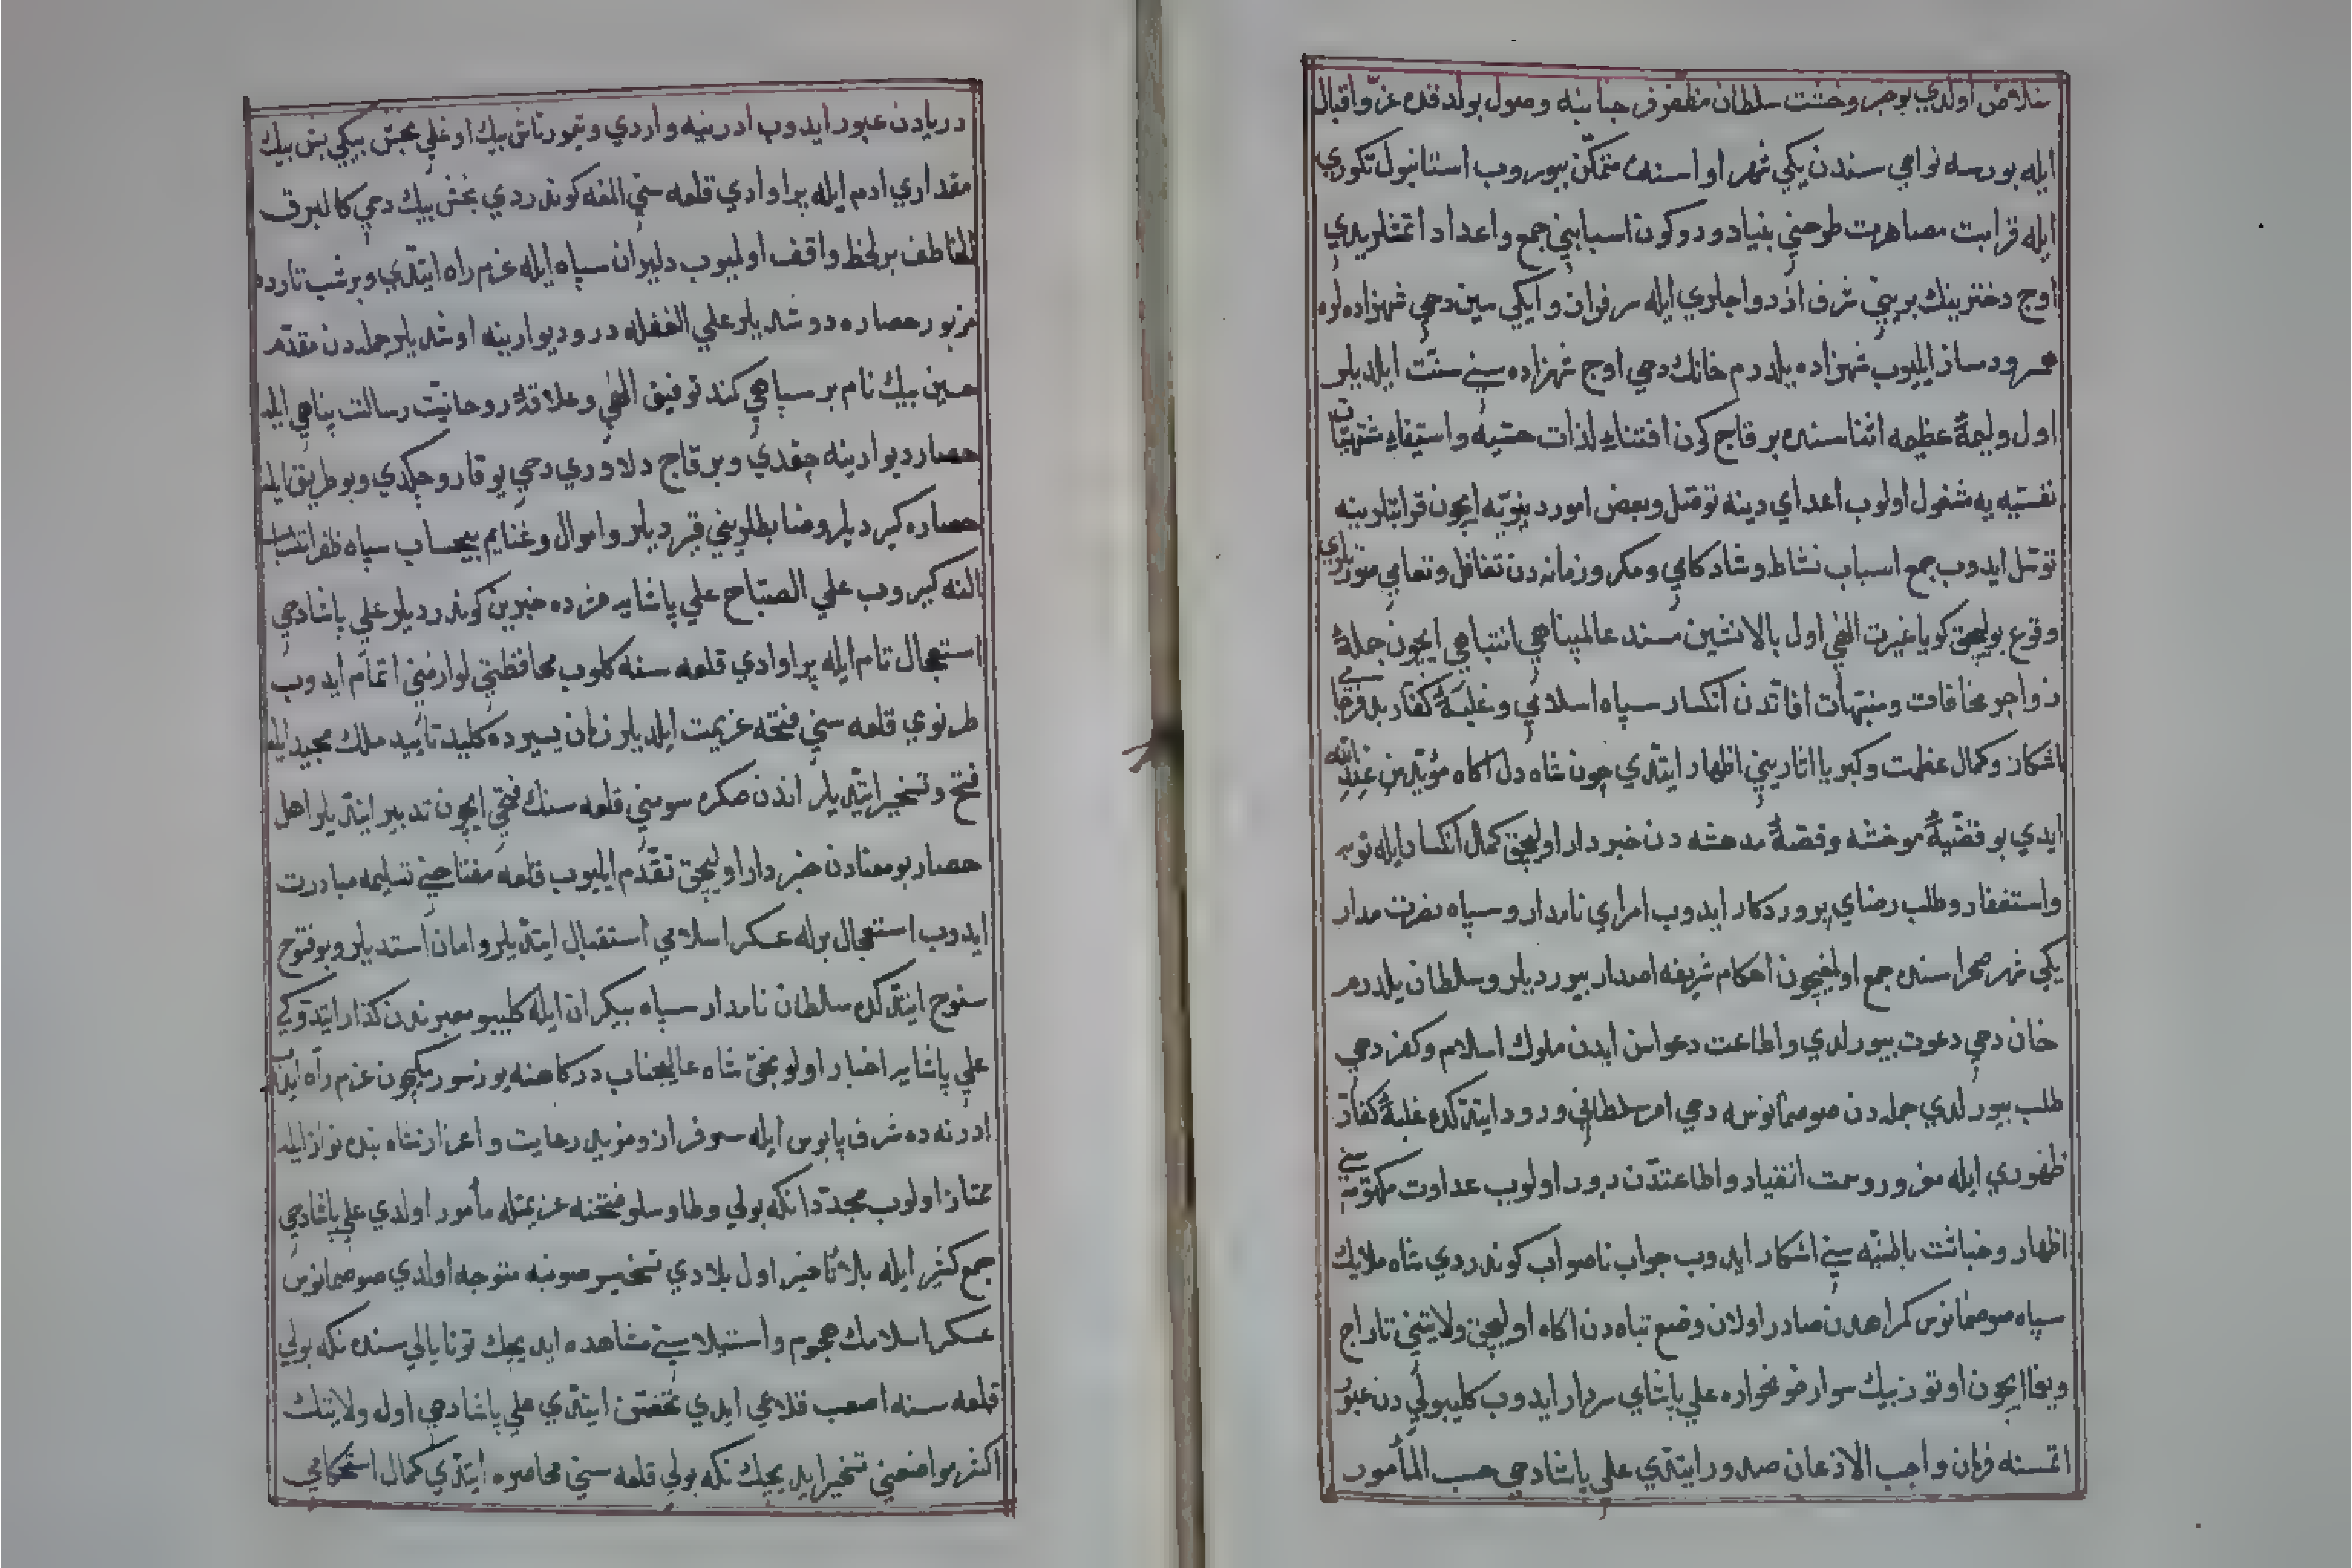 خلاص اولدي بو خبر وحشت سلطان مظفر فر جنابنه وصول بولدقده عز واقبال
ايله بورسه نواحي سندن يكي شهر اواسنده متمكن بيوروب استانبول تكوري
ايله قرابت مصاهرت طرحني بنياد ودوكون اسبابني جمع واعداد اتمشلريدي
اوج دخترينك بريني شرف ازدواجلري ايله سرفراز وايكي سين دحي شهزاده لره
همسر ودمساز ايليوب شهزاده يلدرم خانك دحي اوج شهزاده سني سنت ايلديلر
اول وليمۀ عظيمه اثناسنده بر قاج كون اقتناء لذات حسيه واستيفاء مشتهيات
نفسيه يه مشغول اولوب اعداي دينه توسل وبعض امور دينويه ايچون قرابتلرينه
توسل ايدوب جمع اسباب نشاط وشادكامي ومكر وزمانه دن تغافل وتعامي صورتلري
وقوع بوليجق كويا غيرت الهي اول بالانشين مسند عالمپناهي انتباهي ايچون جملۀ
زواجر مخافات ومنبهات افاتدن انكسار سپاه اسلامي وغلبۀ كفار بدفرجامي
اشكار وكمال عظمت وكبريا اثاريني اظهار ايتدي چون شاه دل اكاه مؤيد من عند الله
ايدي بو قضيۀ موحشه وقصۀ مدهشه دن خبردار اوليجق كمال انكسار ايله توبه
واستغفار وطلب رضاي پروردكار ايدوب امراي نامدار وسپاه نصرت مدار
يكي شهر صحراسنده جمع اولمغيچون احكام شريفه اصدار بيورديلر وسلطان يلدرم
خان دحي دعوت بيورلدي واطاعت دعواسن ايدن ملوك اسلام وكفر دحي
طلب بيورلدي جمله دن صوصمانوسه دحي امر سلطاني ورود ايتدكده غلبۀ كفار
ظهوري ايله مغرور وسمت انقياد واطاعتدن دور اولوب عداوت مكتومه سني
اظهار وخباثت باطنيه سني اشكار ايدوب جواب ناصواب كوندردي شاه ملايك
سپاه صوصمانوس كمراهدن صادر اولان وضع تباه دن اكاه اوليجق ولايتني تاراج
ويغما ايچون اوتوز بيك سوار خونخواره علي پاشاي سردار ايدوب كليبولي دن عبور
اتمسنه فرمان واجب الاذعان صدور ايتدي علي پاشا دحي حسب المأمور
دريادن عبور ايدوب ادرنيه واردي وتيمورتاش بيك اوغلي يخشى بيكي بش بيك
مقداري ادم ايله پراوادي قلعه سني المغه كوندردي يخشى بيك دحي كالبرق
الخاطف بر لحظ واقف اولميوب دليران سپاه ايله عزم راه ايتدي وبر شب تارده
مزبور حصاره دوشديلر علي الغفله در وديوارينه اوشديلر جمله دن مقدم
حسين بيك نام بر سپاهي كمند توفيق الهي وعلاقۀ روحانيت رسالت پناهي ايله
حصار ديوارينه چقدي وبر قاج دلاوري دحي يوقارو چكدي وبو طريق ايله
حصاره كيرديلر وضابطلريني قرديلر واموال وغنايم بيحساب سپاه ظفر انتساب
النه كيروب علي الصباح علي پاشايه مژده خبرين كوندرديلر علي پاشا دحي
استعجال تام ايله پراوادي قلعه سنه كلوب محافظتي لوازمني اتمام ايدوب
طرنوي قلعه سني فتحه عزيمت ايلديلر زمان يسيرده كليد تأييد ملك مجيد ايله
فتح وتسخير ايتديلر اندن صكره سومني قلعه سنك فتحي ايچون تدبير ايتديلر اهل
حصار بو معنادن خبردار اوليجق تقدم ايليوب قلعه مفتاحني تسليمه مبادرت
ايدوب استعجال برله عسكر اسلامي استقبال ايتديلر وامان استديلر وبو فتوح
سنوح ايتدكده سلطان نامدار سپاه بيكران ايله كليبو معبرندن كذار ايتدوكي
علي پاشايه اخبار اولوبحق شاه عاليجناب دركاهنه يوز سورمكيچون عزم راه ايدوب
ادرنه ده شرف پابوس ايله سرفراز ومزيد رعايت واعزاز شاه بنده نواز ايله
ممتاز اولوب مجددا نكه بولي وطاوسلو فتحنه عزيمتله مأمور اولدي علي پاشا دحي
جمع كثير ايله بلا تأخير اول بلادي تسخير صوبنه متوجه اولدي صوصمانوس
عسكر اسلامك هجوم واستيلاسني مشاهده ايديجك تونا يالي سنده نكه بولي
قلعه سنه اصعب قلاعي ايدي تحصن ايتدي علي پاشا دحي اول ولايتك
اكثر مواضعني تسخير ايديجك نكه بولي قلعه سني محاصره ايتدي كمال استحكامي